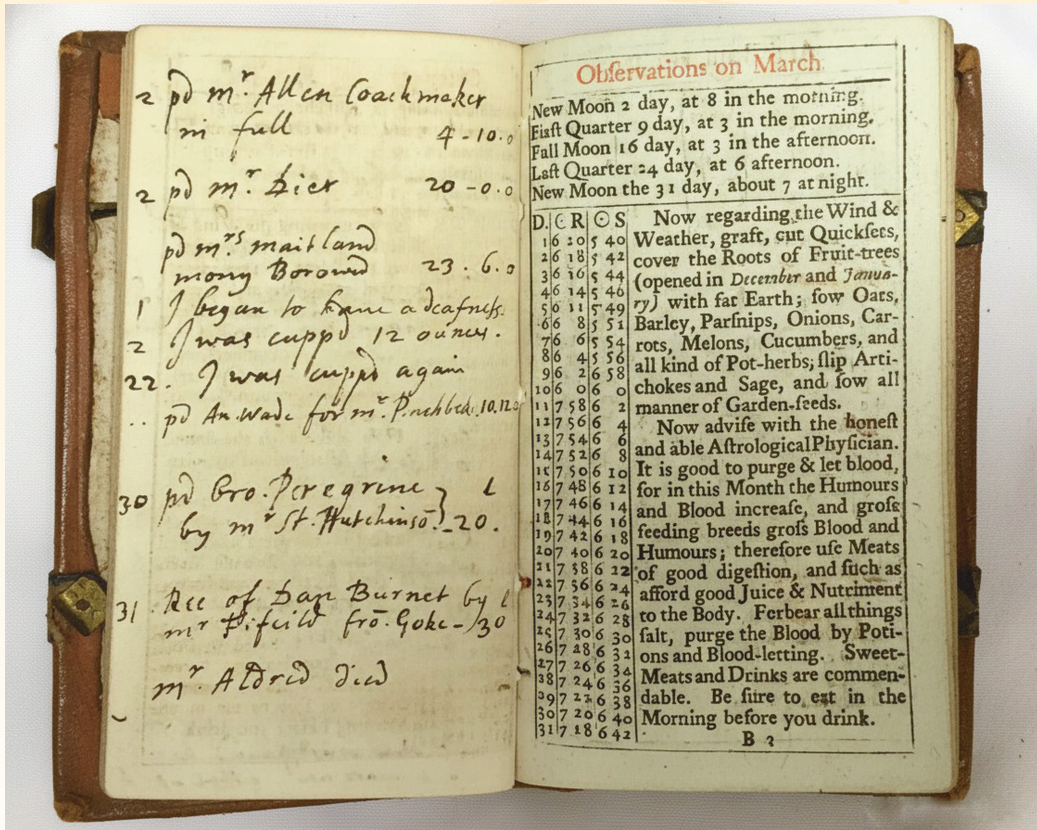 2 pd mr. Allen Coachmaker
in full 4-10.0
2 pd mr. Dier 20-0.0
pd mrs maitland
mony Borowed 23.6.0
1 I began to have a deafness.
2 I was cuppd 12 ounces.
22. I was cuppd again
.. pd An. Wade for mr. Pinchbeck 10.12.0
30 pd Bro. Peregrine } l
by mr St. Hutchinsō. -20.
31 Rec of Dan Burnet by l
mr frō. Goke- 30
mr. Aldred died
Obſervations on March
New Moon 2 day, at 8 in the morning.
Fiaſt Quarter 9 day, at 3 in the morning.
Fall Moon 16 day, at 3 in the afternoon.
Laſt Quarter 24 day, at 6 afternoon.
New Moon the 31 day, about 7 at night.
D. ☾ R ☉ S
1 6 20 5 40
2 6 18 5 42
3 6 16 5 44
4 6 14 5 46
5 6 11 5 49
6 6 8 5 51
7 6 6 5 54
8 6 4 5 56
9 6 2 6 58
10 6 0 6 0
11 7 58 6 2
12 7 56 6 4
13 7 54 6 6
14 7 52 6 8
15 7 50 6 10
16 7 48 6 12
17 7 46 6 14
18 7 44 6 16
19 7 42 6 18
20 7 40 6 20
21 7 38 6 22
22 7 36 6 24
23 7 34 6 26
24 7 32 6 28
25 7 30 6 30
26 7 28 6 32
27 7 26 6 34
38 7 24 6 36
39 7 22 6 38
30 7 20 6 40
31 7 18 6 42
Now regarding the Wind &
Weather, graft, cut Quickſets,
cover the Roots of Fruit-trees
(opened in December and Janua-
ry) with fat Earth; ſow Oats,
Barley, Parſnips, Onions, Car-
rots, Melons, Cucumbers, and
all kind of Pot-herbs; ſlip Arti-
chokes and Sage, and ſow all
manner of Garden-ſeeds.
Now adviſe with the honeſt
and able Aſtrological Phyſician.
It is good to purge & let blood,
for in this Month the Humours
and Blood increaſe, and groſs
feeding breeds groſs Blood and
Humours; therefore uſe Meats
of good digeſtion, and ſuch as
afford good Juice & Nutriment
to the Body. Ferbear all things
ſalt, purge the Blood by Poti-
ons and Blood-letting. Sweet-
Meats and Drinks are commen-
dable. Be ſure to eat in the
Morning before you drink.
B 3